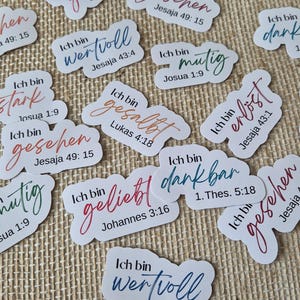 sehen
49: 15
gesehen
Jesaja 49: 15
Ich bin
wertvoll
Jesaja 43:4
Ich bin
mutig
Josua 1:9
Ich bin
dank
Ich bin
stark
Josua 1:9
Ich bin
gesalbt
Lukas 4:18
Ich bin
erlöst
Jesaja 43:1
Ich bin
gesehen
Jesaja 49: 15
mutig
1:9
Ich bin
geliebt
Johannes 3:16
Ich bin
dankbar
1. Thes. 5:18
Ich bin
gesehen
Jesaja 49: 15
Ich bin
wertvoll